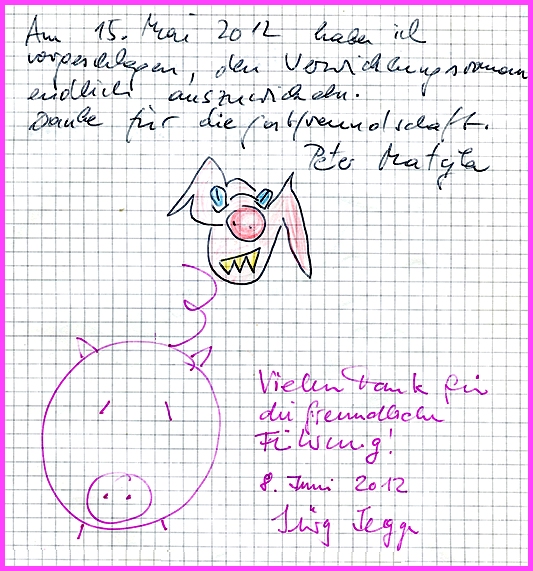 Am 15. Mai 2012 habe ich
vorgeschlagen, den Verwicklungsroman
endlich auszuwickeln.
Danke für die Gastfreundschaft.
Peter Matyla
Vielen Dank für
die freundliche
Führung!
8. Juni 2012
Jürg Jegge